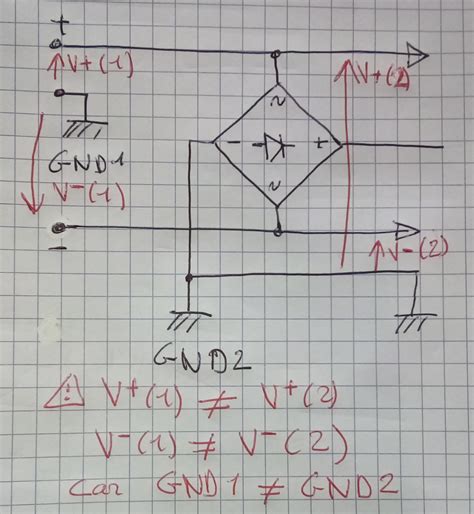 +
V+(1)
V+(2)
~
- +
~
GND1
V-(1)
-
V-(2)
GND2
⚠ V+(1) ≠ V+(2)
V-(1) ≠ V-(2)
Car GND1 ≠ GND2